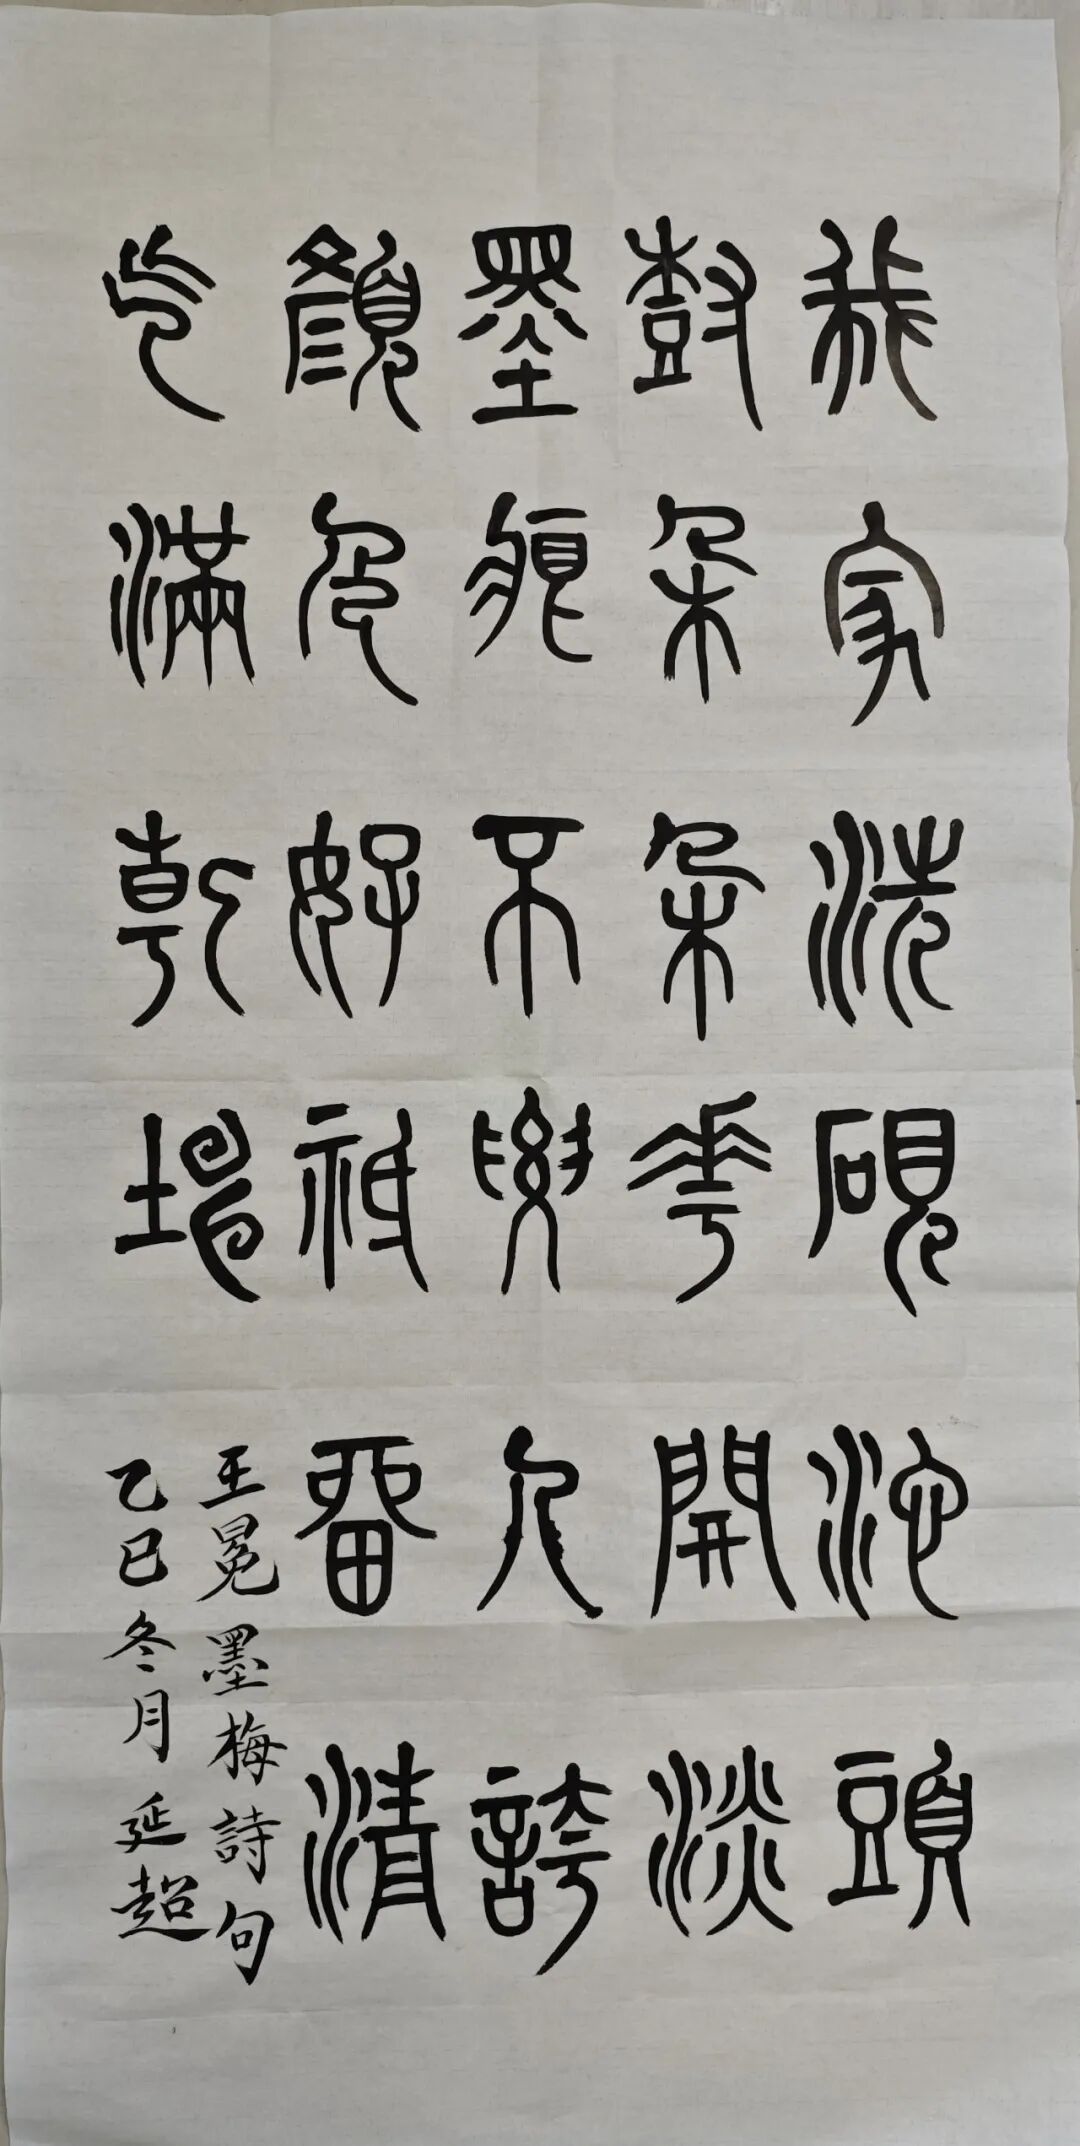 我家洗硯池頭
樹朵朵花開淡
墨痕不要人誇
顏色好祇留清
气滿乾坤
王冕墨梅詩句
乙巳冬月延超